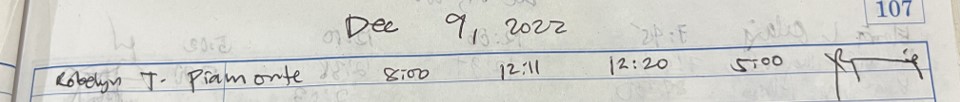 107
Dec 9, 2022
Robelyn T. Piamonte 8:00 12:11 12:20 5:00